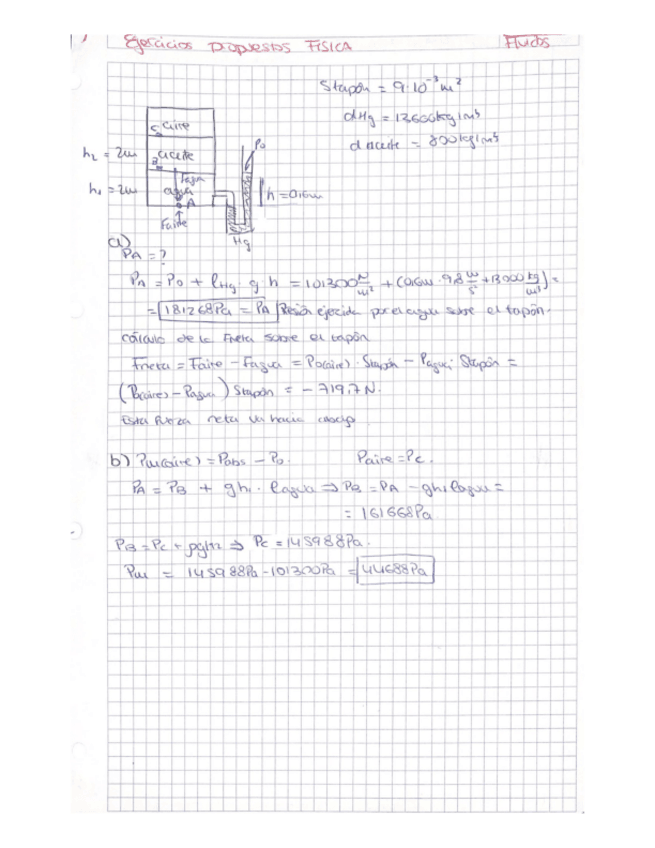 Ejercicios propuestos FÍSICA Fluidos
Stapón = 9·10⁻³ m²
dHg = 13600kg/m³
d Aceite = 800kg/m³
aire
h₂ = 2m aceite P₀
Fagua
h₁ = 2m agua A h = 0,6m
Faire
Hg
a)
PA = ?
PA = P₀ + ρHg g h = 101300 N/m²
= 181268Pa = PA Presión ejercida por el agua sobre el tapón.
cálculo de la Fneta sobre el tapón
Fneta = Faire - Fagua = P₀(aire) · Stapón - Pagua · Stapón =
(P₀(aire) - Pagua) Stapón = - 719,7 N.
Esta fuerza neta va hacia
b) Pm(aire) = Pabs - P₀. Paire = Pc.
PA = PB + gh₁ · ρagua ⇒ PB = PA - gh₁ρagua =
= 161668Pa
PB = Pc + ρgh₂ ⇒ Pc = 145988Pa.
Pm = 145988Pa - 101300Pa = 44688Pa